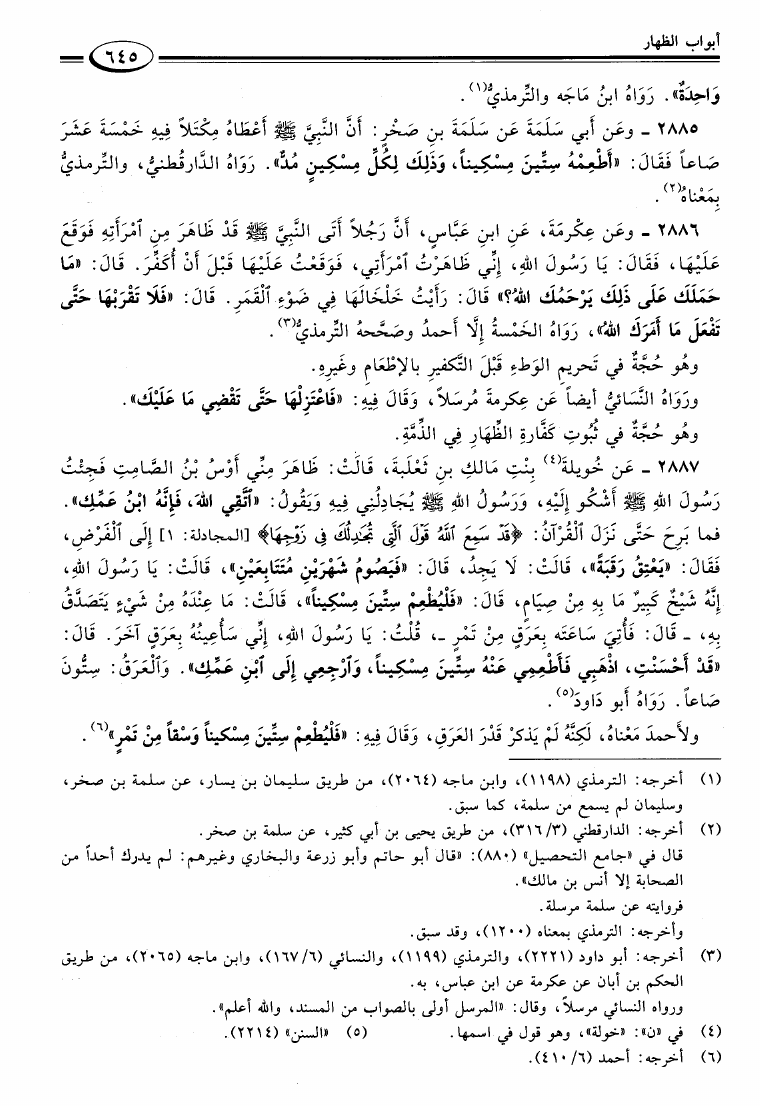 أبواب الظهار
٦٤٥
وَاحِدَةٌ». رَوَاهُ ابنُ مَاجَه والتِّرمذيُّ(١).
٢٨٨٥ ـ وعَن أبي سَلَمَةَ عَن سَلَمَةَ بنِ صَخْرٍ: أَنَّ النَّبِيَّ ﷺ أَعْطَاهُ مِكْتَلاً فِيهِ خَمْسَةَ عَشَرَ
صَاعاً فَقَالَ: «أَطْعِمْهُ سِتِّينَ مِسْكِيناً، وَذَلِكَ لِكُلِّ مِسْكِينٍ مُدٌّ». رَوَاهُ الدَّارقُطنيُّ، والتِّرمذيُّ
بِمَعْناهُ(٢).
٢٨٨٦ ـ وعَن عِكْرِمَةَ، عَنِ ابنِ عَبَّاسٍ، أَنَّ رَجُلاً أَتَى النَّبِيَّ ﷺ قَدْ ظَاهَرَ مِنِ ٱمْرَأَتِهِ فَوَقَعَ
عَلَيْهَا، فَقَالَ: يَا رَسُولَ اللهِ، إِنِّي ظَاهَرْتُ ٱمْرَأَتِي، فَوَقَعْتُ عَلَيْهَا قَبْلَ أَنْ أُكَفِّرَ. قَالَ: «مَا
حَمَلَكَ عَلَى ذَلِكَ يَرْحَمُكَ اللهُ؟» قَالَ: رَأَيْتُ خَلْخَالَهَا فِي ضَوْءِ ٱلْقَمَرِ. قَالَ: «فَلَا تَقْرَبْهَا حَتَّى
تَفْعَلَ مَا أَمَرَكَ اللهُ»، رَوَاهُ الخَمْسةُ إلَّا أحمدُ وصَحَّحهُ التِّرمذيُّ(٣).
وهُو حُجَّةٌ في تَحريمِ الوَطءِ قَبْلَ التَّكفيرِ بالإطْعامِ وغَيرِهِ.
ورَوَاهُ النَّسائيُّ أيضاً عَن عِكرمةَ مُرسَلاً، وَقَالَ فِيهِ: «فَاعْتَزِلْهَا حَتَّى تَقْضِي مَا عَلَيْكَ».
وهُو حُجَّةٌ في ثُبُوتِ كَفَّارةِ الظِّهَارِ فِي الذِّمَّةِ.
٢٨٨٧ ـ عَن خُويلةَ(٤) بِنْتِ مَالكِ بنِ ثَعْلَبةَ، قَالَتْ: ظَاهَرَ مِنِّي أَوْسُ بْنُ الصَّامِتِ فَجِئْتُ
رَسُولَ اللهِ ﷺ أَشْكُو إِلَيْهِ، وَرَسُولُ اللهِ ﷺ يُجَادِلُنِي فِيهِ وَيَقُولُ: «ٱتَّقِي اللهَ، فَإِنَّهُ ابْنُ عَمِّكِ».
فما بَرِحَ حَتَّى نَزَلَ ٱلْقُرْآنُ: ﴿قَدْ سَمِعَ ٱللَّهُ قَوْلَ ٱلَّتِى تُجَٰدِلُكَ فِى زَوْجِهَا﴾ [المجادلة: ١] إِلَى ٱلْفَرْضِ،
فَقَالَ: «يَعْتِقُ رَقَبَةً»، قَالَتْ: لَا يَجِدُ، قَالَ: «فَيَصُومُ شَهْرَيْنِ مُتَتَابِعَيْنِ»، قَالَتْ: يَا رَسُولَ اللهِ،
إِنَّهُ شَيْخٌ كَبِيرٌ مَا بِهِ مِنْ صِيَامٍ، قَالَ: «فَلْيُطْعِمْ سِتِّينَ مِسْكِيناً»، قَالَتْ: مَا عِنْدَهُ مِنْ شَيْءٍ يَتَصَدَّقُ
بِهِ، ـ قَالَ: فَأُتِيَ سَاعَتَه بِعَرَقٍ مِنْ تَمْرٍ ـ، قُلْتُ: يَا رَسُولَ اللهِ، إِنِّي سَأُعِينُهُ بِعَرَقٍ آخَرَ. قَالَ:
«قَدْ أَحْسَنْتِ، اذْهَبِي فَأَطْعِمِي عَنْهُ سِتِّينَ مِسْكِيناً، وَٱرْجِعِي إِلَى ٱبْنِ عَمِّكِ». وَٱلْعَرَقُ: سِتُّونَ
صَاعاً. رَوَاهُ أبو دَاودَ(٥).
ولأحمدَ مَعْناهُ، لَكِنَّهُ لَمْ يَذكرْ قَدْرَ العَرَقِ، وَقَالَ فِيهِ: «فَلْيُطْعِمْ سِتِّينَ مِسْكِيناً وَسْقاً مِنْ تَمْرٍ»(٦).
(١) أخرجه: الترمذي (١١٩٨)، وابن ماجه (٢٠٦٤)، من طريق سليمان بن يسار، عن سلمة بن صخر،
وسليمان لم يسمع من سلمة، كما سبق.
(٢) أخرجه: الدارقطني (٣١٦/٣)، من طريق يحيى بن أبي كثير، عن سلمة بن صخر.
قال في «جامع التحصيل» (٨٨٠): «قال أبو حاتم وأبو زرعة والبخاري وغيرهم: لم يدرك أحداً من
الصحابة إلا أنس بن مالك».
فروايته عن سلمة مرسلة.
وأخرجه: الترمذي بمعناه (١٢٠٠)، وقد سبق.
(٣) أخرجه: أبو داود (٢٢٢١)، والترمذي (١١٩٩)، والنسائي (١٦٧/٦)، وابن ماجه (٢٠٦٥)، من طريق
الحكم بن أبان عن عكرمة عن ابن عباس، به.
ورواه النسائي مرسلاً، وقال: «المرسل أولى بالصواب من المسند، والله أعلم».
(٤) في «ن»: «خولة»، وهو قول في اسمها. (٥) «السنن» (٢٢١٤).
(٦) أخرجه: أحمد (٤١٠/٦).